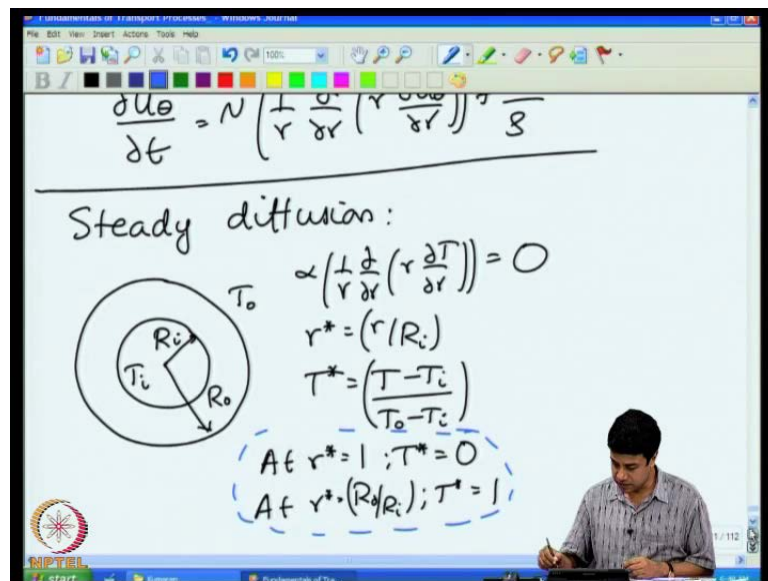 Fundamentals of Transport Processes - Windows Journal
File Edit View Insert Actions Tools Help
100%
B I
∂uθ/∂t = ν (1/r ∂/∂r (r ∂uθ/∂r)) + /ρ
Steady diffusion:
α(1/r ∂/∂r (r ∂T/∂r)) = 0
To
r* = (r/Ri)
Ri
Ti
T* = (T-Ti / To-Ti)
Ro
At r* = 1 ; T* = 0
At r* = (Ro/Ri) ; T* = 1
1 / 112
NPTEL
start
Fundamentals of Tra